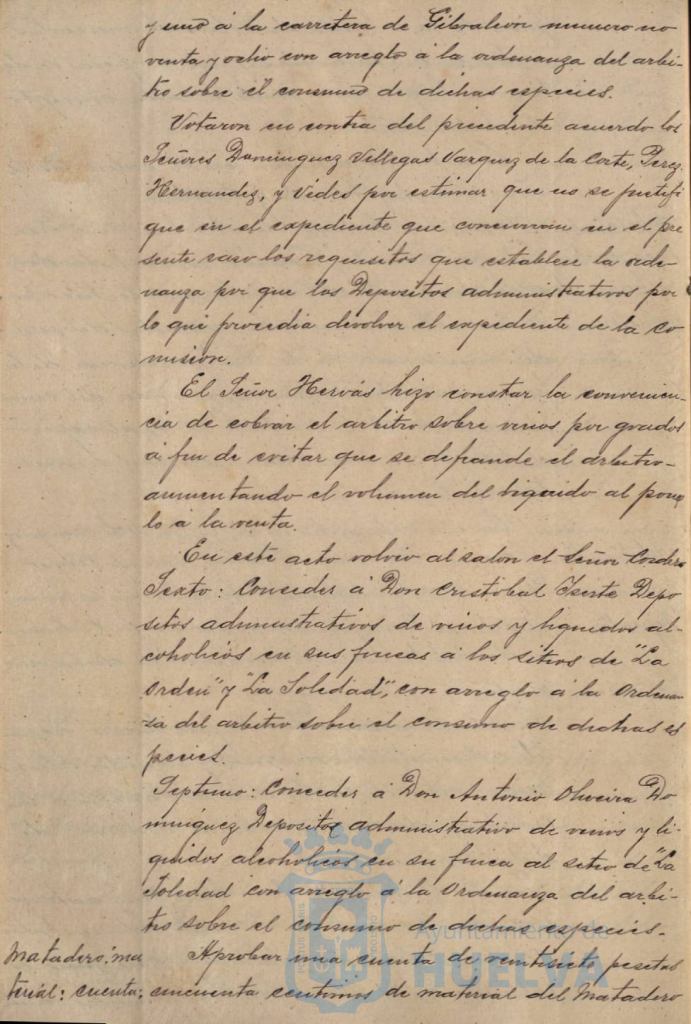 y uno á la carretera de Gibraleon numero no
venta y ocho con arreglo á la ordenanza del arbi-
trio sobre el consumo de dichas especies.
Votaron en contra del precedente acuerdo los
Señores Dominguez Villegas Vazquez de la Corte, Perez
Hernandez, y Vides por estimar que no se justifi
que en el expediente que concurran en el pre
sente caso los requisitos que establece la orde-
nanza por que los Depositos administrativos por
lo que procedia devolver el expediente de la co
mision.
El Señor Hervás hizo constar la convenien-
cia de cobrar el arbitrio sobre vinos por grados
á fin de evitar que se defraude el arbitrio
aumentando el volumen del liquido al poner
lo á la venta.
En este acto volvio al salon el Señor Cordero
Sexto: Conceder á Don Cristobal Iserte Depo
sitos administrativos de vinos y liquidos al-
coholicos en sus fincas á los sitios de "La
Orden" y "La Soledad", con arreglo á la Ordenan-
za del arbitrio sobre el consumo de dichas es
pecies.
Septimo: Conceder á Don Antonio Oliveira Do
minguez Deposito administrativo de vinos y li-
quidos alcoholicos en su finca al sitio de "La
Soledad con arreglo á la Ordenanza del arbi-
trio sobre el consumo de dichas especies.
Matadero: ma Aprobar una cuenta de veintisiete pesetas
terial: cuenta; cincuenta centimos de material del Matadero
Ayuntamiento de
HUELVA